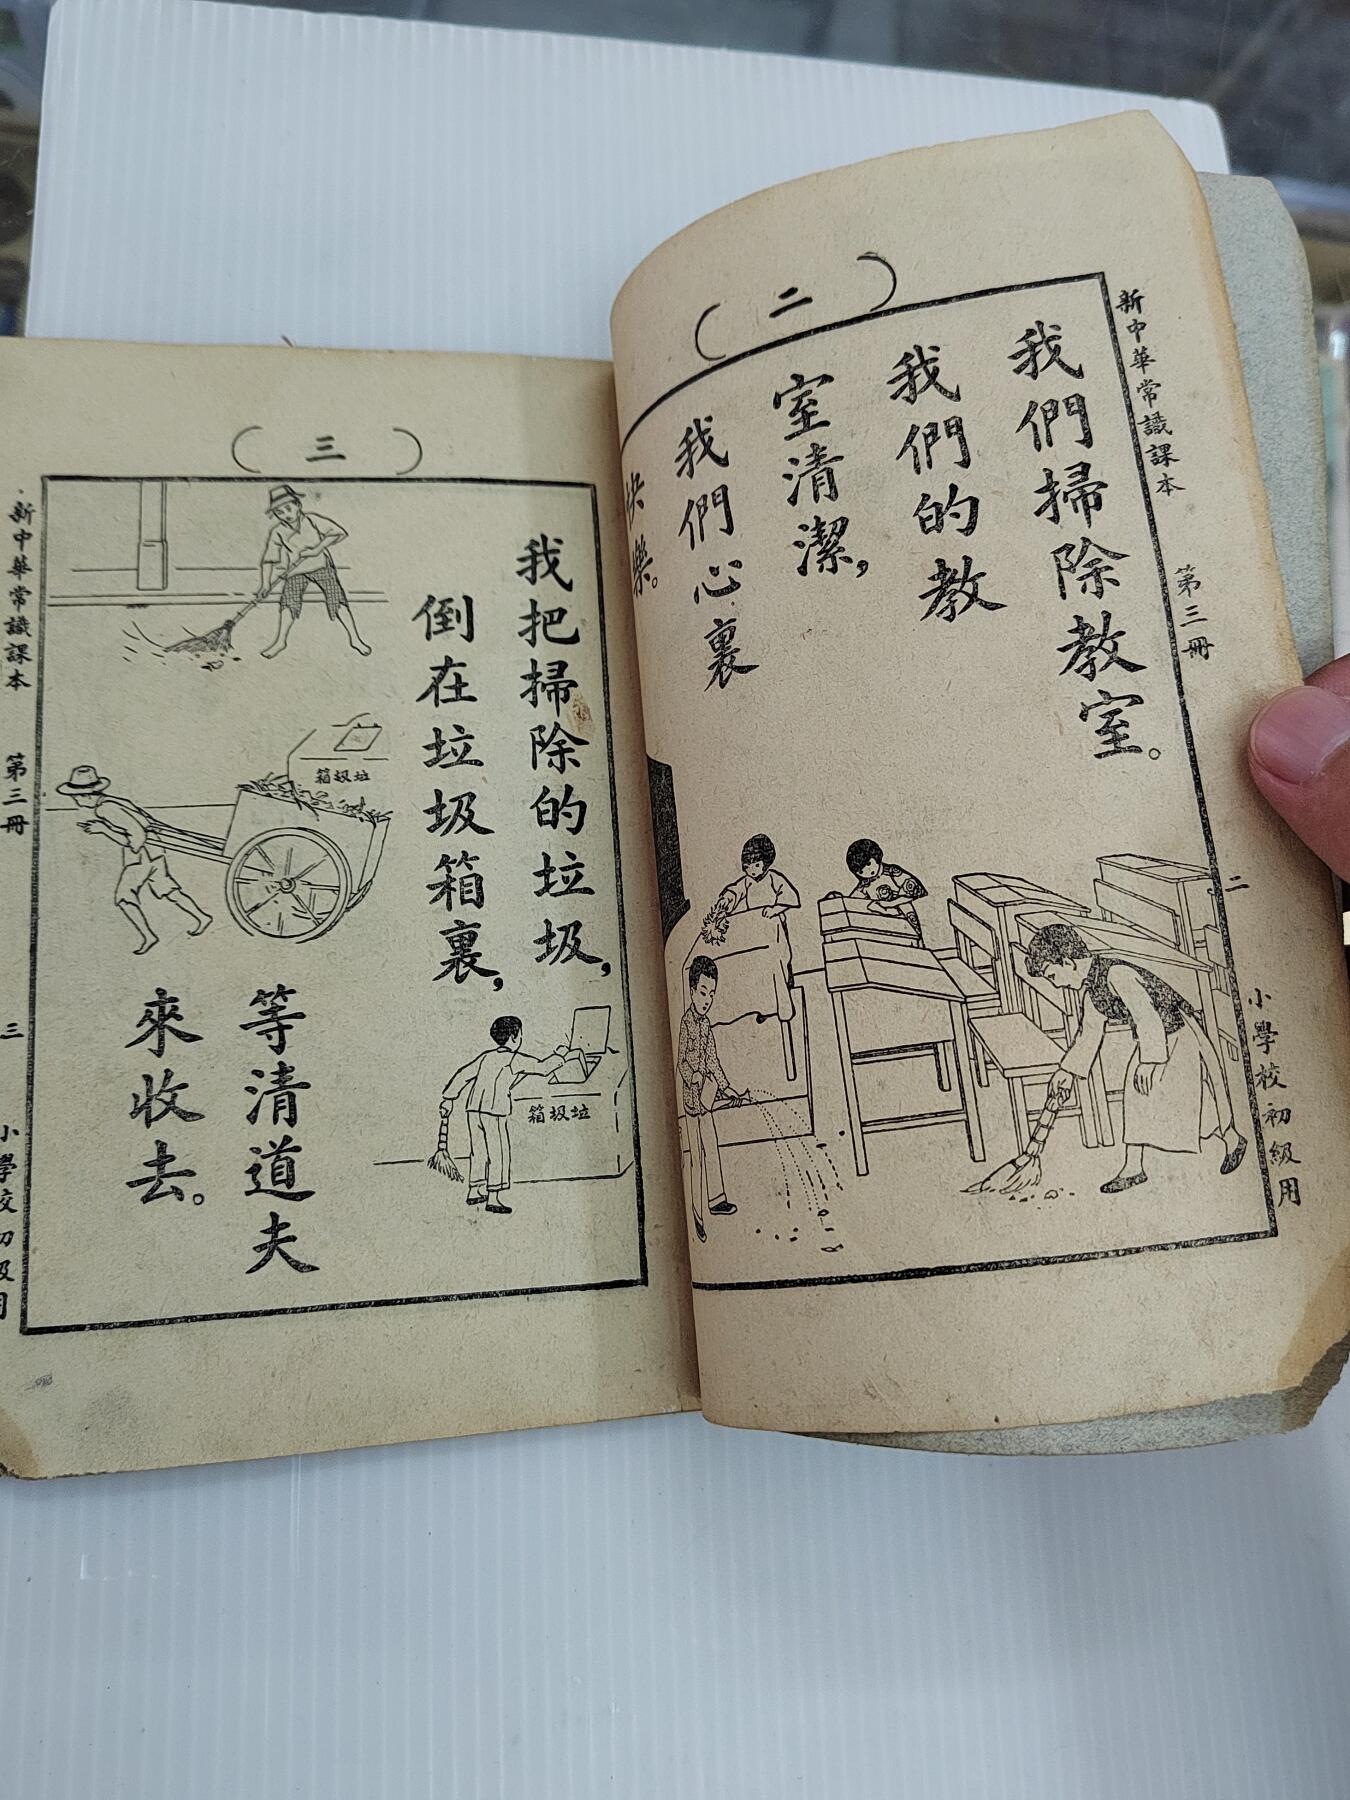 新中華常識課本 第三冊 二 小學校初級用
（二）
我們掃除教室。
我們的教
室清潔，
我們心裏
快樂。
（三）
我把掃除的垃圾，
倒在垃圾箱裏，
等清道夫
來收去。
箱圾垃
箱圾垃
新中華常識課本 第三冊 三 小學校初級用